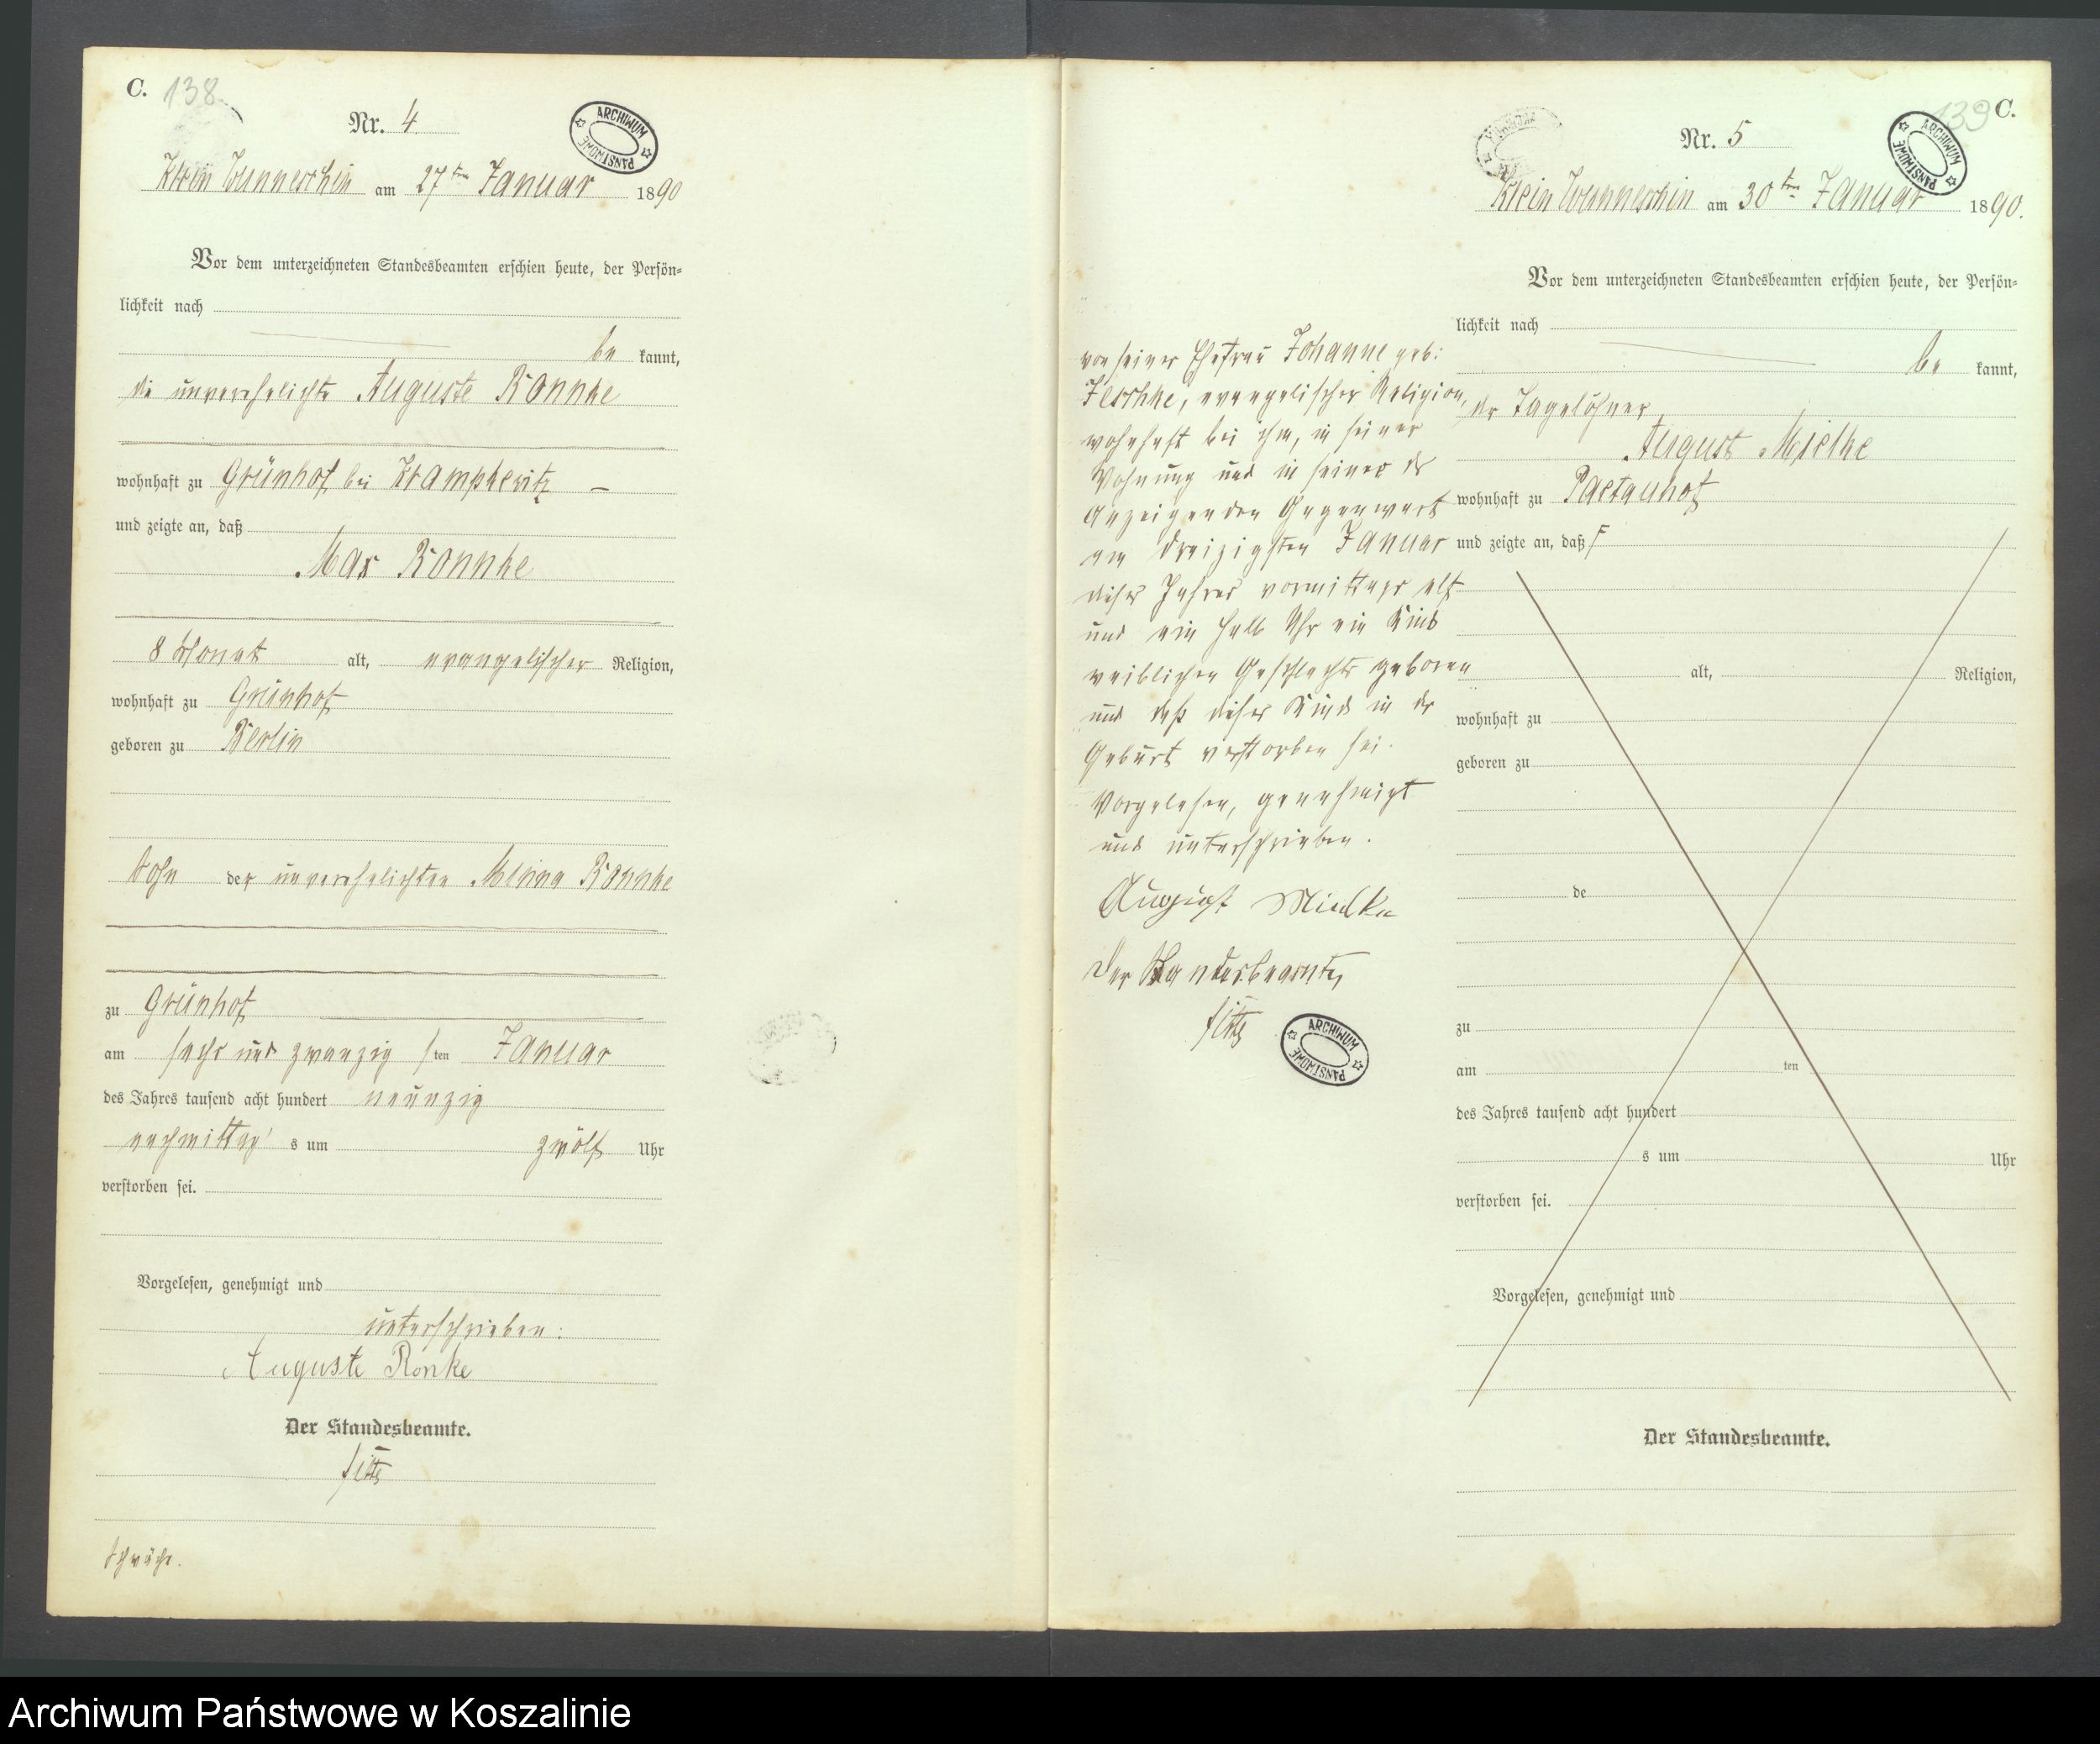 C. 138
Nr. 4
ARCHIWUM PAŃSTWOWE
Klein Wunneschin am 27ten Januar 1890
Vor dem unterzeichneten Standesbeamten erschien heute, der Persön-
lichkeit nach
be kannt,
die unverehelichte Auguste Rönnke
wohnhaft zu Grünhof bei Krampkewitz
und zeigte an, daß
Max Rönnke
8 Monat alt, evangelischer Religion,
wohnhaft zu Grünhof
geboren zu Berlin
Sohn der unverehelichten Minna Rönnke
zu Grünhof
am sechs und zwanzigsten Januar
des Jahres tausend acht hundert neunzig
nachmittags um zwölf Uhr
verstorben sei.
Vorgelesen, genehmigt und
unterschrieben:
Auguste Rönke
Der Standesbeamte.
Schwäche.
139 C.
Nr. 5
ARCHIWUM PAŃSTWOWE
Klein Wunneschin am 30ten Januar 1890.
Vor dem unterzeichneten Standesbeamten erschien heute, der Persön-
lichkeit nach
be kannt,
der Tagelöhner
August Mielke
wohnhaft zu
und zeigte an, daß
von seiner Ehefrau Johanne geb:
Jeschke, evangelischer Religion,
wohnhaft bei ihm, in seiner
Wohnung und in seiner des
Anzeigenden Gegenwart
am dreizigsten Januar
dieses Jahres vormittags elf
und ein halb Uhr ein Kind
weiblichen Geschlechts geboren
und daß dieses Kind in der
Geburt verstorben sei.
Vorgelesen, genehmigt
und unterschrieben.
August Mielke
Der Standesbeamte
ARCHIWUM PAŃSTWOWE
alt, Religion,
wohnhaft zu
geboren zu
de
zu
am ten
des Jahres tausend acht hundert
s um Uhr
verstorben sei.
Vorgelesen, genehmigt und
Der Standesbeamte.
Archiwum Państwowe w Koszalinie